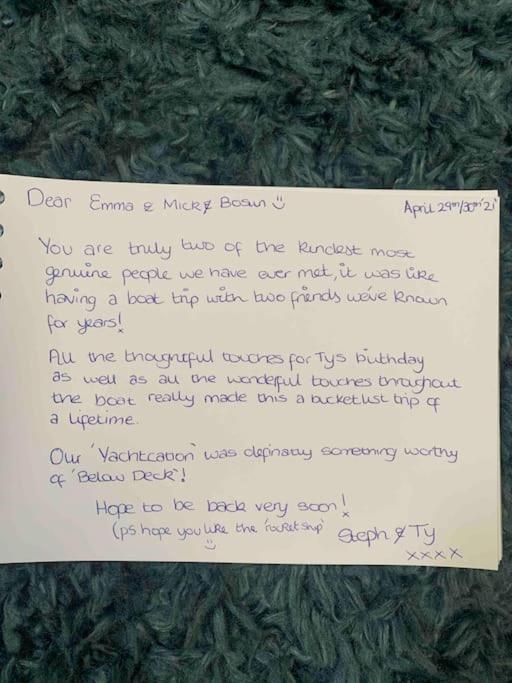 Dear Emma & Mick & Bosun
April 29th/30th '21
You are truly two of the kindest most
genuine people we have ever met, it was like
having a boat trip with two friends we've known
for years!
All the thoughtful touches for Tys birthday
as well as all the wonderful touches throughout
the boat really made this a bucketlist trip of
a lifetime.
Our 'Yachtcation' was definatly something worthy
of 'Below Deck'!
Hope to be back very soon!
(ps. hope you like the 'rocket ship'
Steph & Ty
xxxx